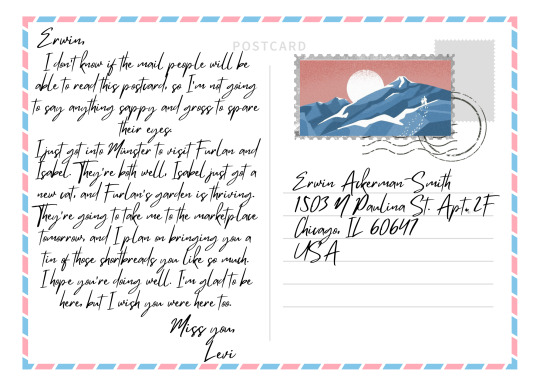 POSTCARD
Erwin,
I don't know if the mail people will be
able to read this postcard, so I'm not going
to say anything sappy and gross to spare
their eyes.
I just got into Münster to visit Furlan and
Isabel. They're both well, Isabel just got a
new cat, and Furlan's garden is thriving.
They're going to take me to the marketplace
tomorrow, and I plan on bringing you a
tin of those shortbreads you like so much.
I hope you're doing well. I'm glad to be
here, but I wish you were here too.
Miss you,
Levi
Erwin Ackerman-Smith
1503 N Paulina St. Apt. 2F
Chicago, IL 60647
USA